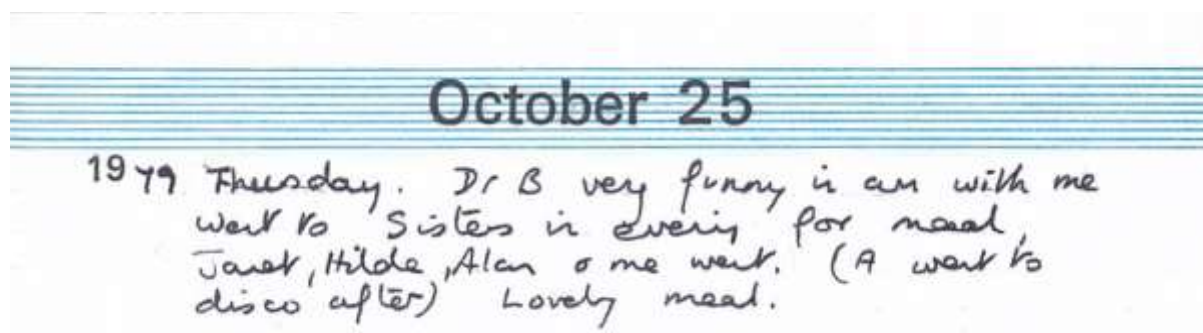 October 25
1979 Thursday. Dr B very funny in am with me
went to Sisters in evening for meal,
Janet, Hilda, Alan & me went. (A went to
disco after) Lovely meal.